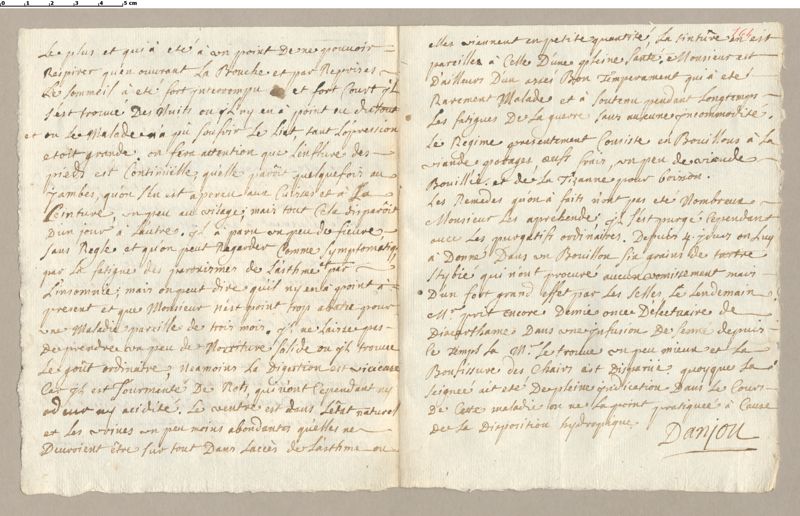 Le plus et qui a eté a un point De ne pouvoir
Respirer qu'en ouvrant La Bouche et par Reprises
Le Sommeil a eté fort interrompu et fort Court jl
s'est trouvé Des Nuits ou jl n'y en a point eu du tout
et ou Le Malade n'a pû soufrir Le Lict tant L'opression
etoit grande. on fera attention que L'influre des
pieds est Continüelle; quelle paroît quelquefois au
Jambes, qu'on s'en est apercu aux Cuisses et a La
Ceinture, un peu au visage; mais tout Cela disparoît
D'un jour a Lautre. jl a paru un peu de fieure
sans Regle et qu'on peut Regarder Comme Symptomatiq
par La fatigue des paroxismes de L'asthme et par
L'insomnie; mais on peut dire qu'il n'y en a point a
present et que Monsieur n'est point trop abatu pour
une Maladie pareille de trois mois. jl ne Laisse pas
De prendre un peu de Nourriture solide ou jl trouve
Le goût ordinaire Neamoins La Digestion est vicieuse
Car jl est Tourmenté De Rots, qui n'ont Cependant ny
odeur ny acidité. Le ventre est dans L'état naturel
et Les urines un peu moins abondantes quelles ne
Deuroient être sur tout Dans L'accès de L'asthme ou
164
elles viennent en petite quantité, La tinture en est
pareille a Celle D'une pleine santé, Monsieur est
D'ailleurs D'un assés Bon Temperament qui a eté
Rarement Malade et a soutenu pendant Longtemps
Les fatigues De La guerre sans aucune jncommodité.
Le Regime presentement Consiste en Bouillons a La
viande potages œufs frais, un peu de viande
Bouillie. et de La Tizanne pour boisson.
Les Remedes qu'on a faits n'ont pas eté Nombreux
Monsieur Les aprehende jl s'est purgé Cependant
avec Les purgatifs ordinaires. Depuis 4 jours on Luy
a Donné Dans un Bouillon six grains de tartre
stybié qui n'ont procuré aucun vomissement mais
D'un fort grand effet par Les selles Le Lendemain
Mr. prit encore Demie once D'electuaire de
Diacarthame Dans une jnfusion De senné depuis
Ce temps La Mr. Se trouve un peu mieux et La
Bouffissure des Chairs a Disparue, quoyque La
seignée ait eté De pleine jndication Dans Le Cours
De Cette maladie on ne La point pratiquée a Cause
de La Disposition hydropique
Danjou